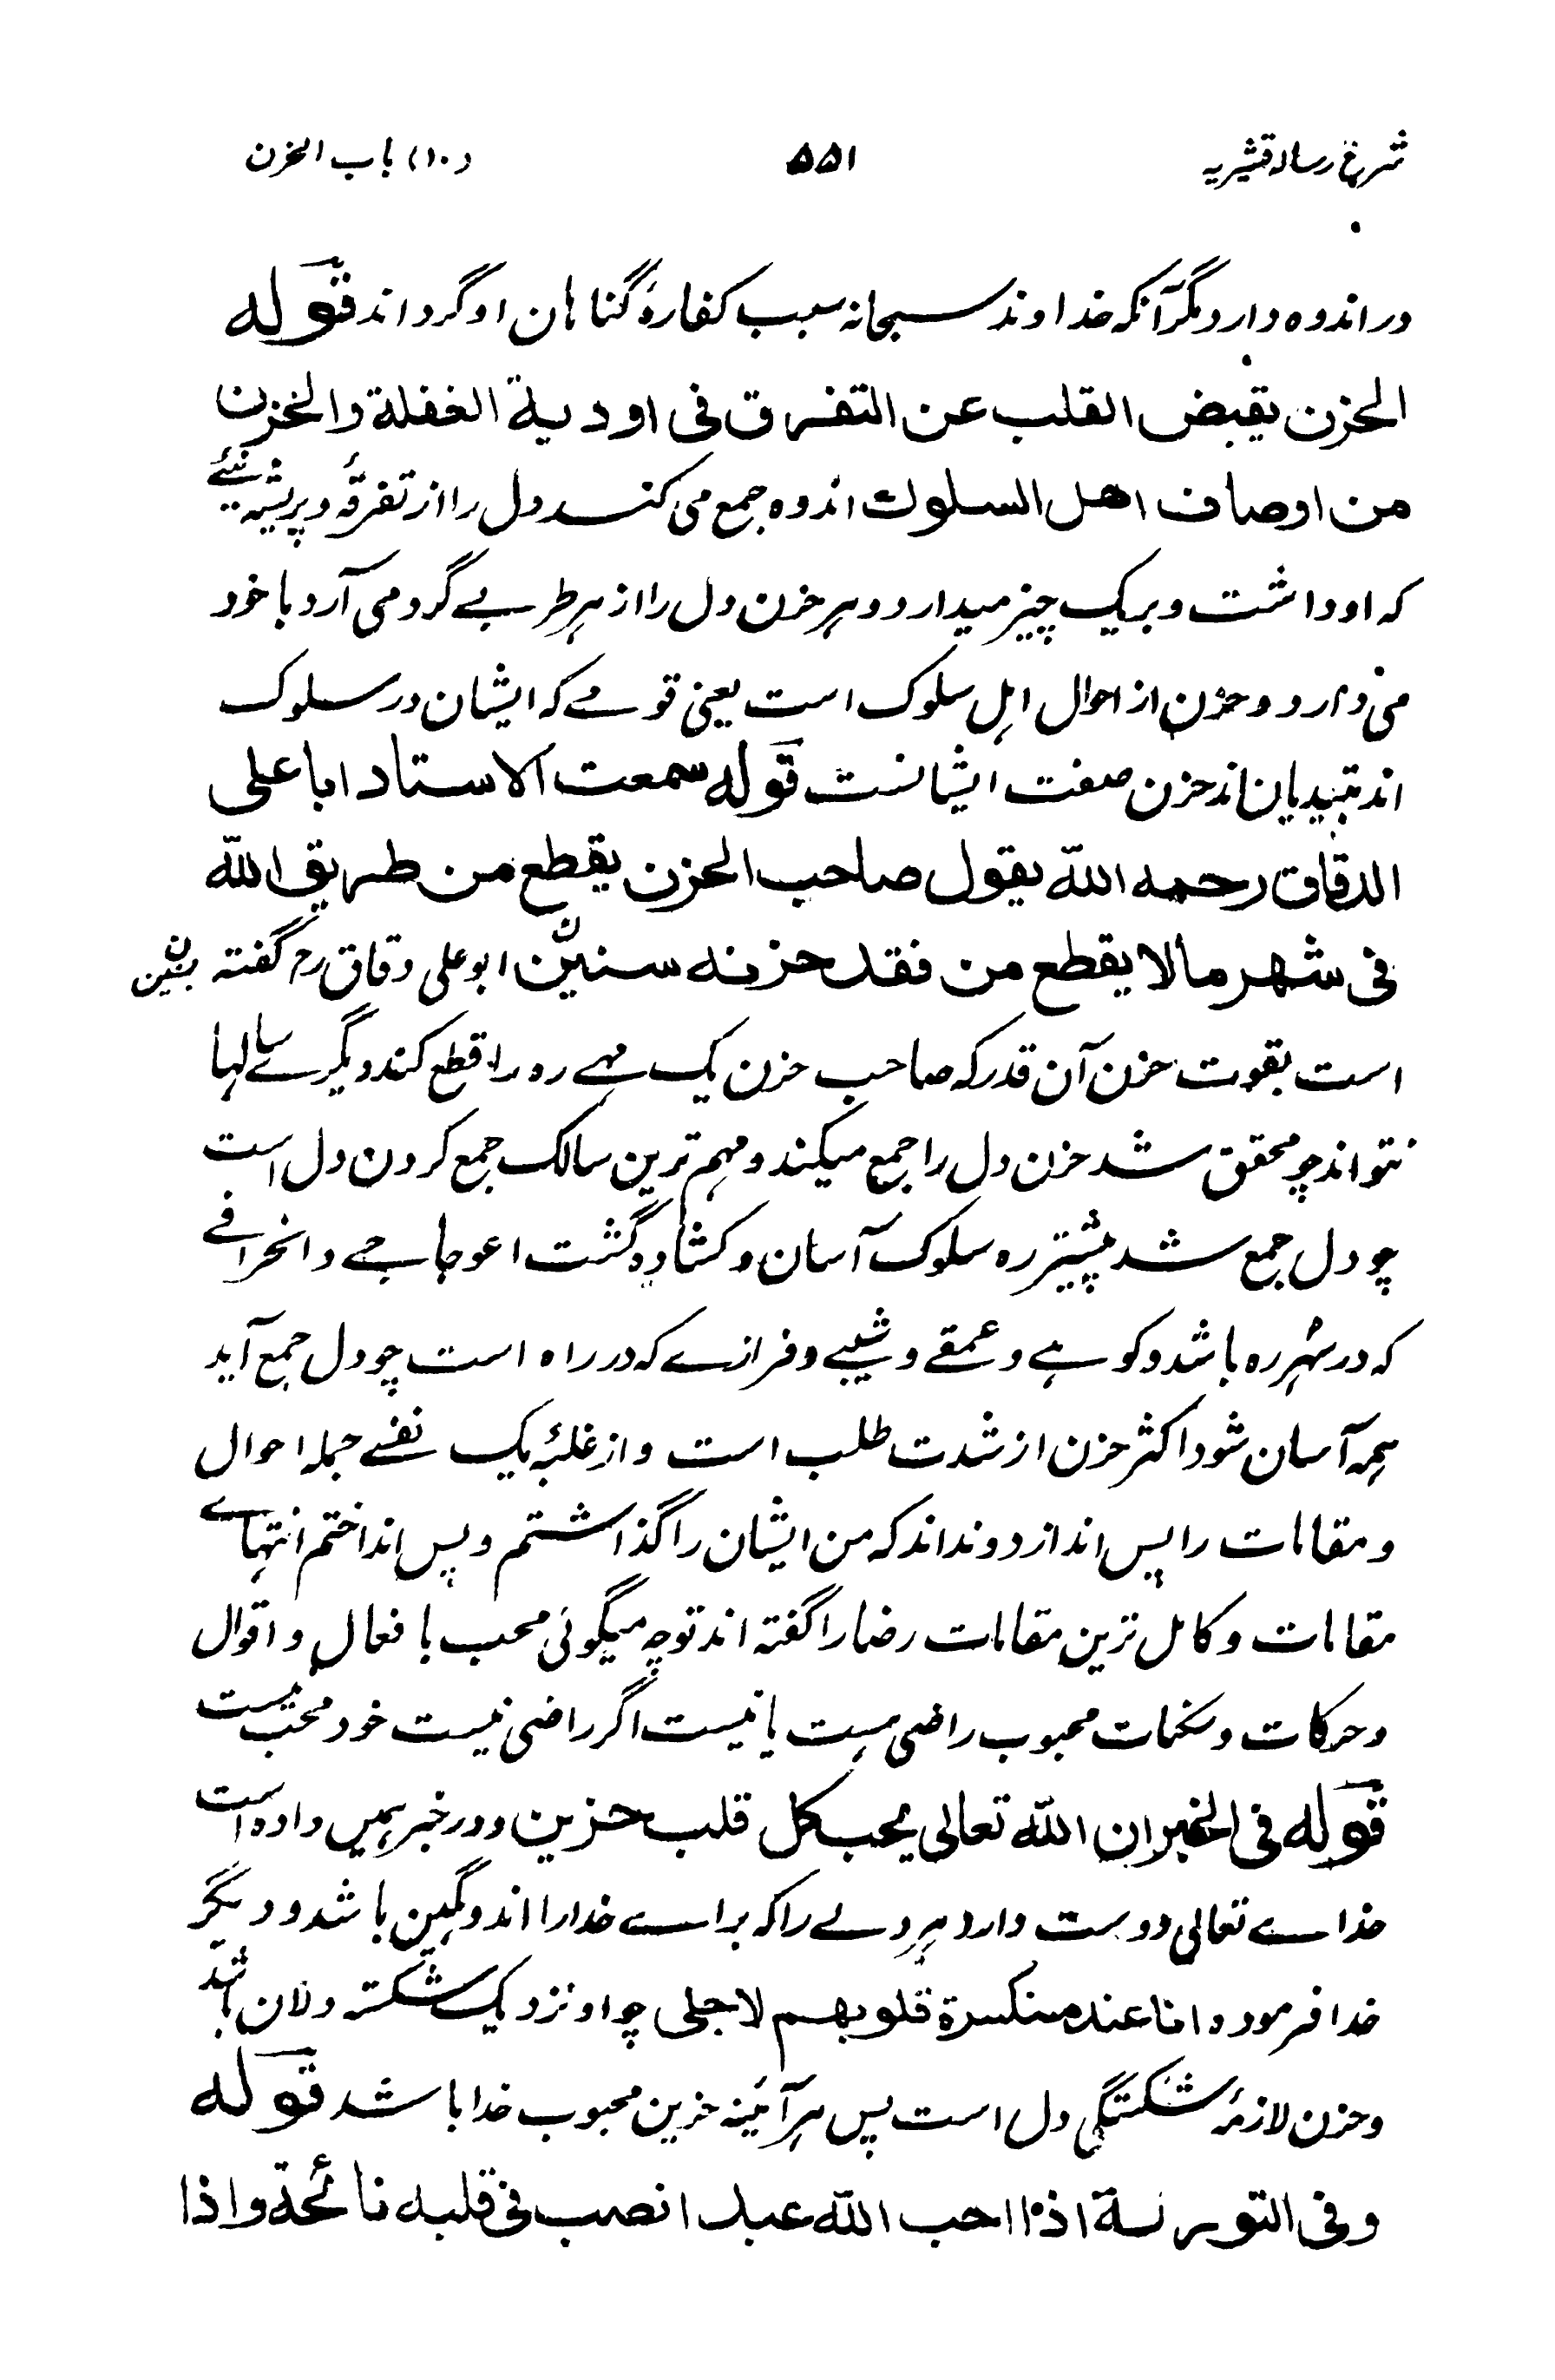 شرح رسالہ قشیریہ ۵۵۱ (۱۰) باب الحزن
در اندوہ دارد مگر آنکہ خداوند سبحانہ سبب کفارۂ گناہان او گرداند قولہ
الحزن یقبض القلب عن التفرق فی اودیۃ الغفلۃ والحزن
من اوصاف اھل السلوك اندوہ جمع می کند دل را از تفرقہ و پریشانیئے
کہ او داشت و بریک چیز میدارد و ہر حزن دل را از ہر طرفے گرد می آرد با خود
می دارد و حزن از احوال اہل سلوک است یعنی قومے کہ ایشان در سلوک
اند مبتدیان اند حزن صفت ایشانست قولہ سمعت الاستاد ابا علی
الدقاق رحمہ اللہ یقول صاحب الحزن یقطع من طریق اللہ
فی شھر مالا یقطع من فقد حزنہ سنین ابو علی دقاق رح گفتہ
است بقوت حزن آن قدر کہ صاحب حزن یک مہے رہ را قطع کند دیگرے سالہا
نتواند چو محقق شد حزن دل را جمع میکند و مہم ترین سالک جمع کردن دل است
چو دل جمع شد پیشتر رہ سلوک آسان و کشادہ گشت اعوجاجے و انحرافے
کہ در ہر رہ باشد و کوہے و عمقے و شیبے و فرازے کہ در راہ است چو دل جمع آید
ہمہ آسان شود اکثر حزن از شدت طلب است و از غلبۂ یک نفسے جملہ احوال
و مقامات را پس اندازد و نداند کہ من ایشان را گذاشتم و پس انداختم انتہاے
مقامات و کامل ترین مقامات رضا را گفتہ اند تو چہ میگوئی محب بافعال و اقوال
و حرکات و سکنات محبوب راضی ہست یا نیست اگر راضی نیست خود محب نیست
قولہ فی الخبر ان اللہ تعالی یحب کل قلب حزین و در خبر ہمیں دادہ است
خداے تعالی دوست دارد ہر دلے را کہ براے خدا را اندوہگین باشد و دیگر
خدا فرمودہ انا عند منکسرۃ قلوبھم لاجلی چو او نزدیک شکستہ دلان باشد
و حزن لازمۂ شکستگی دل است پس ہر آئینہ حزین محبوب خدا باشد قولہ
و فی التورٰىۃ اذا احب اللہ عبدا نصب فی قلبہ نائحۃ و اذا